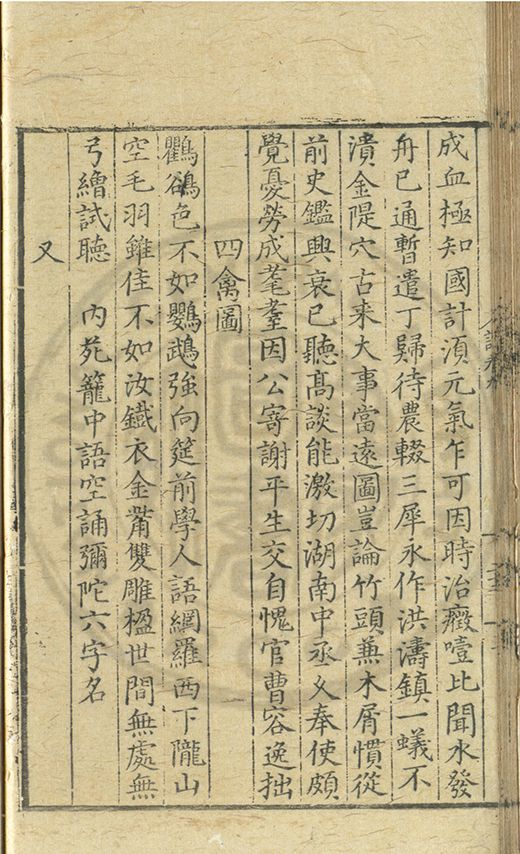 成血極知國計湏元氣乍可因時治癥噎比聞水發
舟已通暫遣丁歸待農輟三犀永作洪濤鎮一蟻不
潰金隄穴古来大事當遠圖豈論竹頭兼木屑慣從
前史鑑興衰已聽髙談能激切湖南中丞乆奉使頗
覺憂勞成耄耋因公寄謝平生交自愧官曹容逸拙
四禽圖
鸜鵒色不如鸚鵡強向筵前學人語網羅西下隴山
空毛羽雖佳不如汝鐵衣金觜雙雕楹世間無處無
弓繒試聽 內苑籠中語空誦彌陀六字名
又